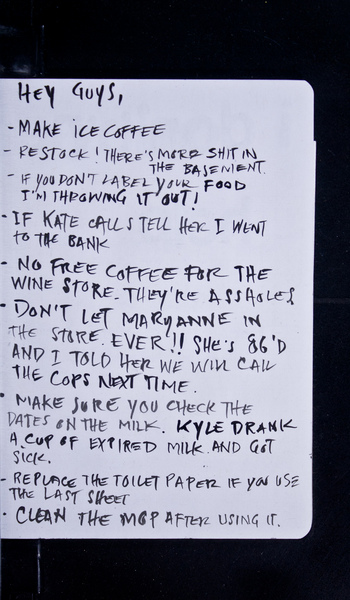 HEY GUYS,
- MAKE ICE COFFEE
- RESTOCK! THERE'S MORE SHIT IN
THE BASEMENT.
- IF YOU DON'T LABEL YOUR FOOD
I'M THROWING IT OUT!
- IF KATE CALLS TELL HER I WENT
TO THE BANK
- NO FREE COFFEE FOR THE
WINE STORE. THEY'RE ASSHOLES
- DON'T LET MARYANNE IN
THE STORE. EVER!! SHE'S 86'D
AND I TOLD HER WE WILL CALL
THE COPS NEXT TIME.
· MAKE SURE YOU CHECK THE
DATES ON THE MILK. KYLE DRANK
A CUP OF EXPIRED MILK AND GOT
SICK.
- REPLACE THE TOILET PAPER IF YOU USE
THE LAST SHEET
· CLEAN THE MOP AFTER USING IT.